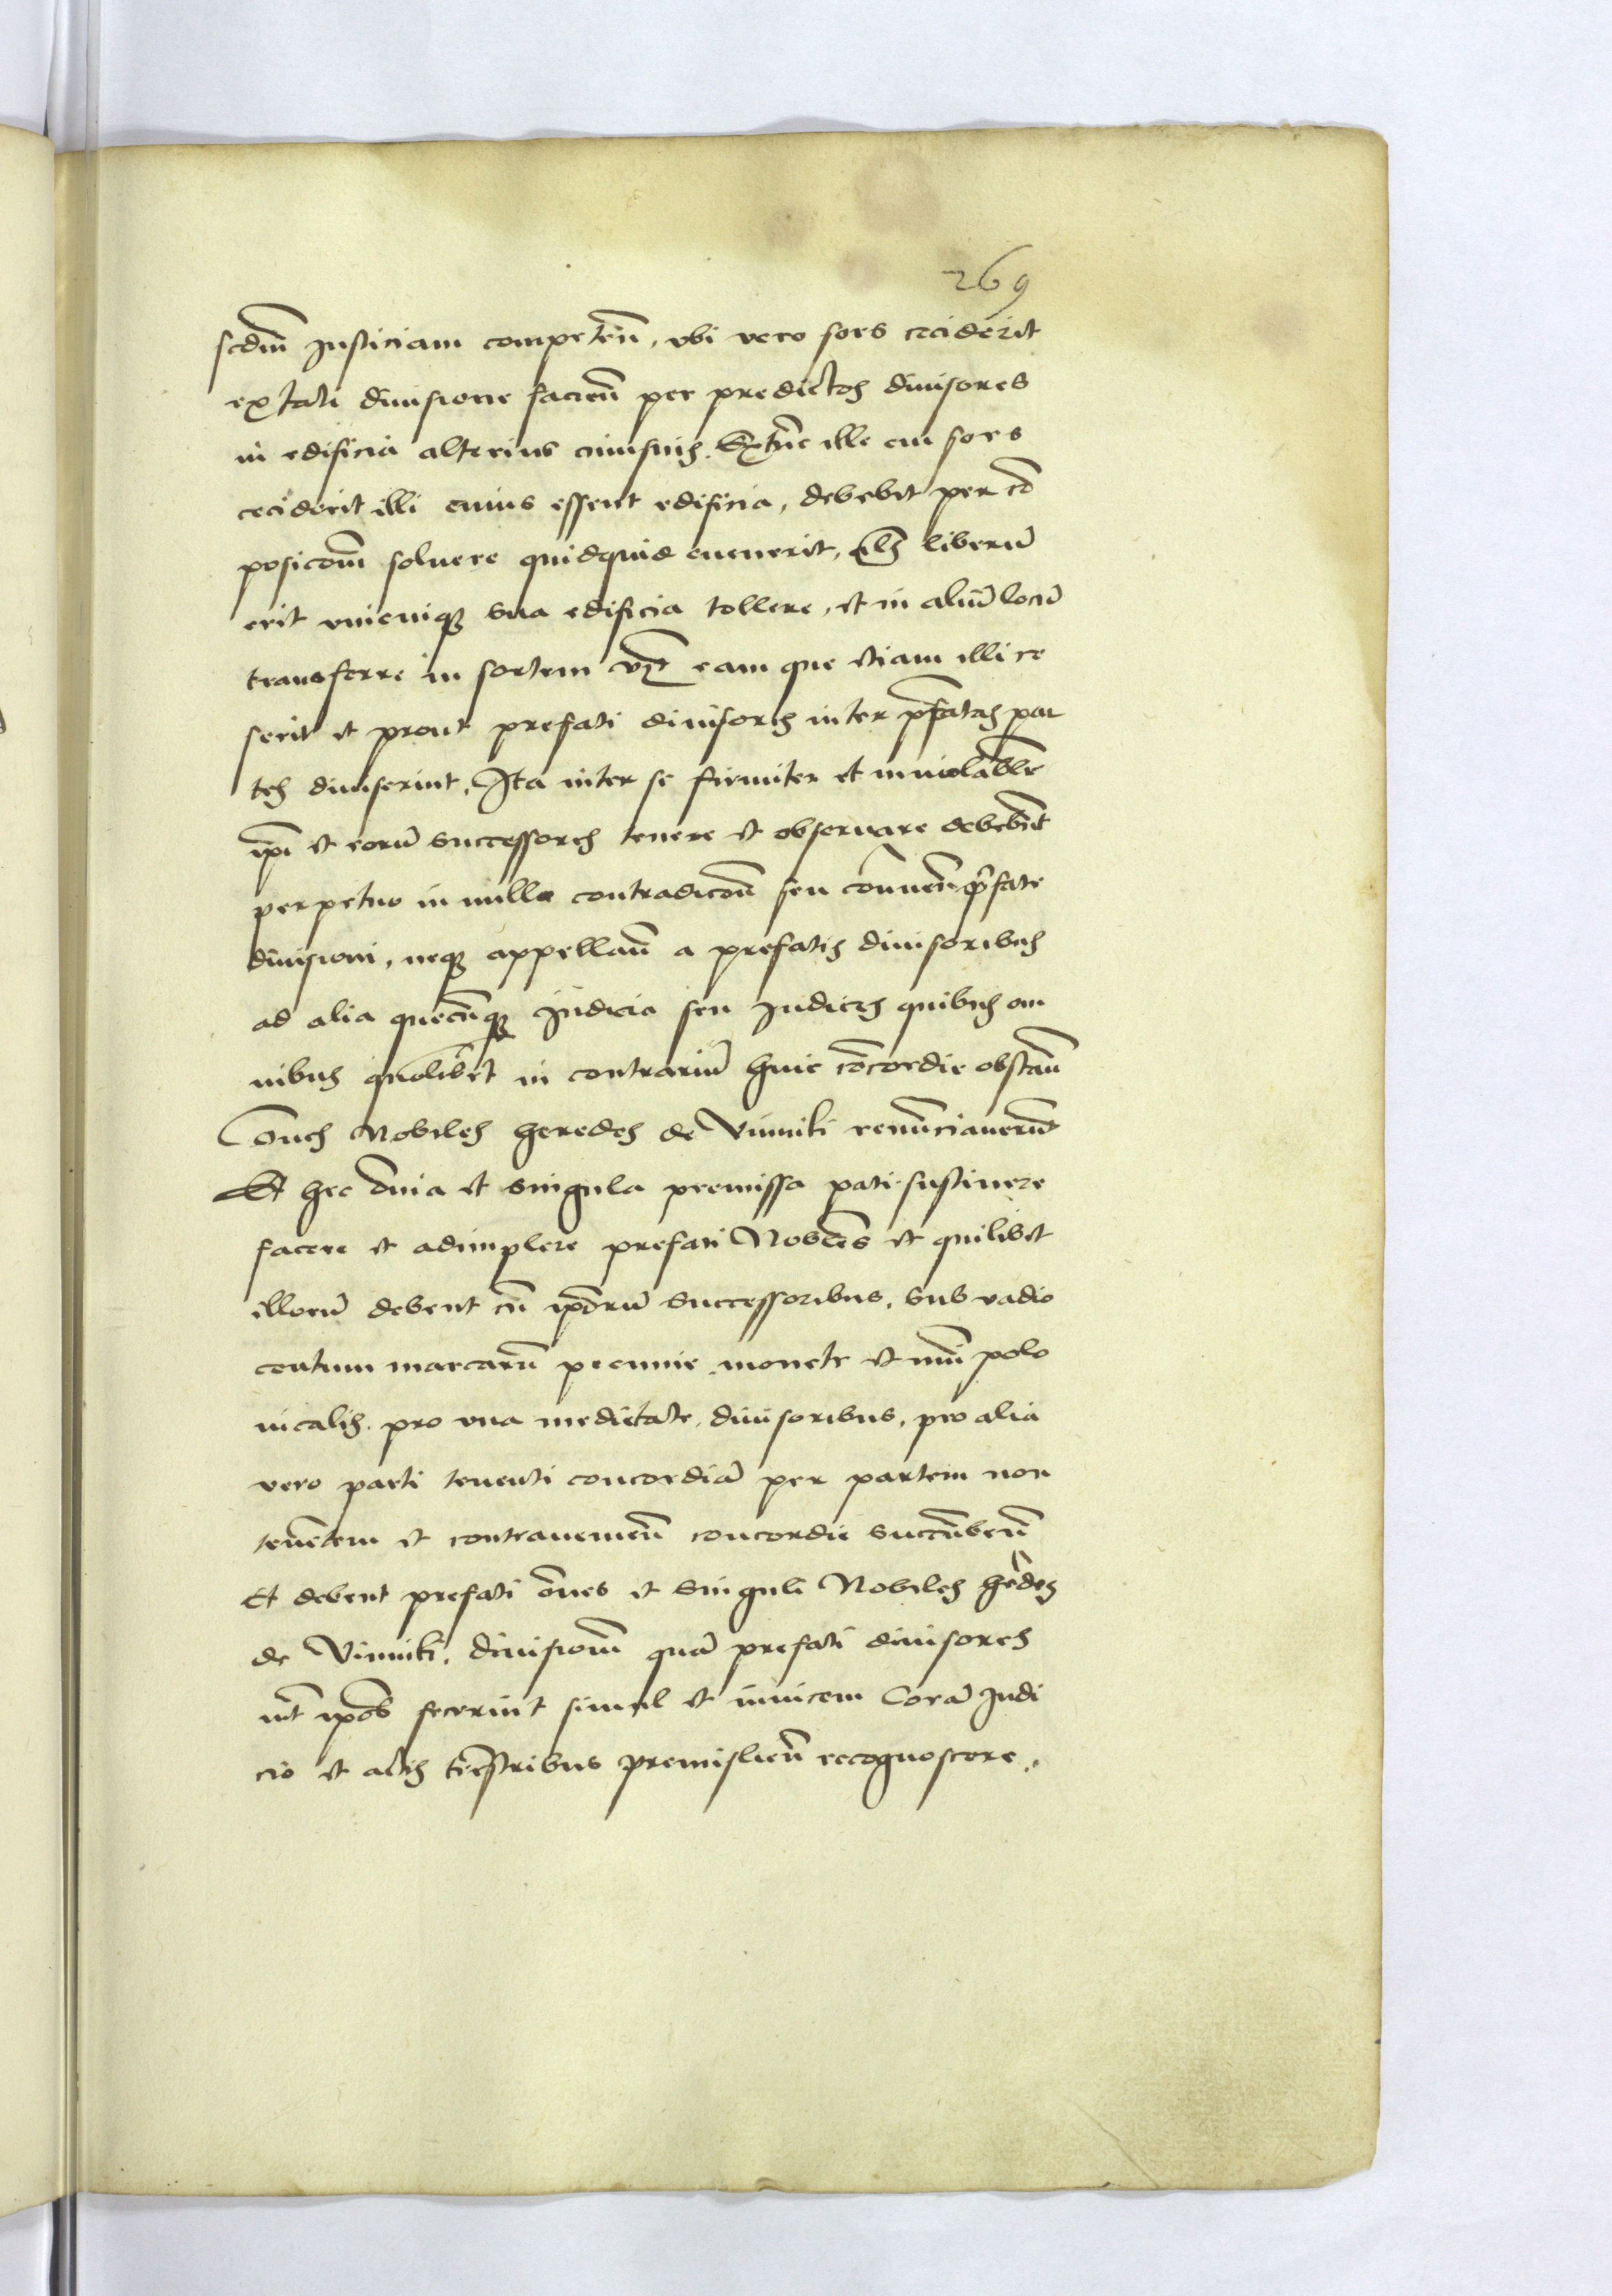 269
scdm̄ Justiciam competeñ, vbi vero sors ceciderit
ex tali diuisione facieñ per predictos diuisores
in edificia alterius cuiusuis. Extūc ille cui sors
ceciderit illi cuius essent edificia, debebit per cō
posicōm soluere quidquid euenerit, liberū
erit vnicuiqȝ sua edificia tollere, et in aliū locū
transferre in sortem eam que etiam illi ce
serit et prout prefati diuisores inter p̄fatas par
tes diuiserint, Ita inter se firmiter et inuiolabłe
ipī et eorū successores tenere et obseruare debebūt
perpetuo in nullo contradicōn seu cōnueniēn p̄fate
diuisioni, neqȝ appellañ a prefatis diuisoribus
ad alia quecūqȝ Judicia seu Judices quibus om
nibus quolibet in contrariū huic cōcordie obstañ
Om̄es Nobiles heredes de Vinniki renūnciauerūt
Et hec ōnia et singula premissa pati sustinere
facere et adimplere prefati Nobłes et quilibet
illorū debent cū ipōrū successoribus, sub vadio
centum marcarū pecunie monete et nūi polo
nicalis. pro vna medietate, diuisoribus, pro alia
vero parti tenenti concordiā per partem non
tenētem et contraueniēn concordie succūbeñ
Et debent prefati ōnes et singuli Nobiles her̄des
de Vinniki, diuisionem quā prefati diuisores
int̄ ipōs fecerint simul et inuicem Corā Judi
cio et actis trēstribus premislieñ recognoscere.